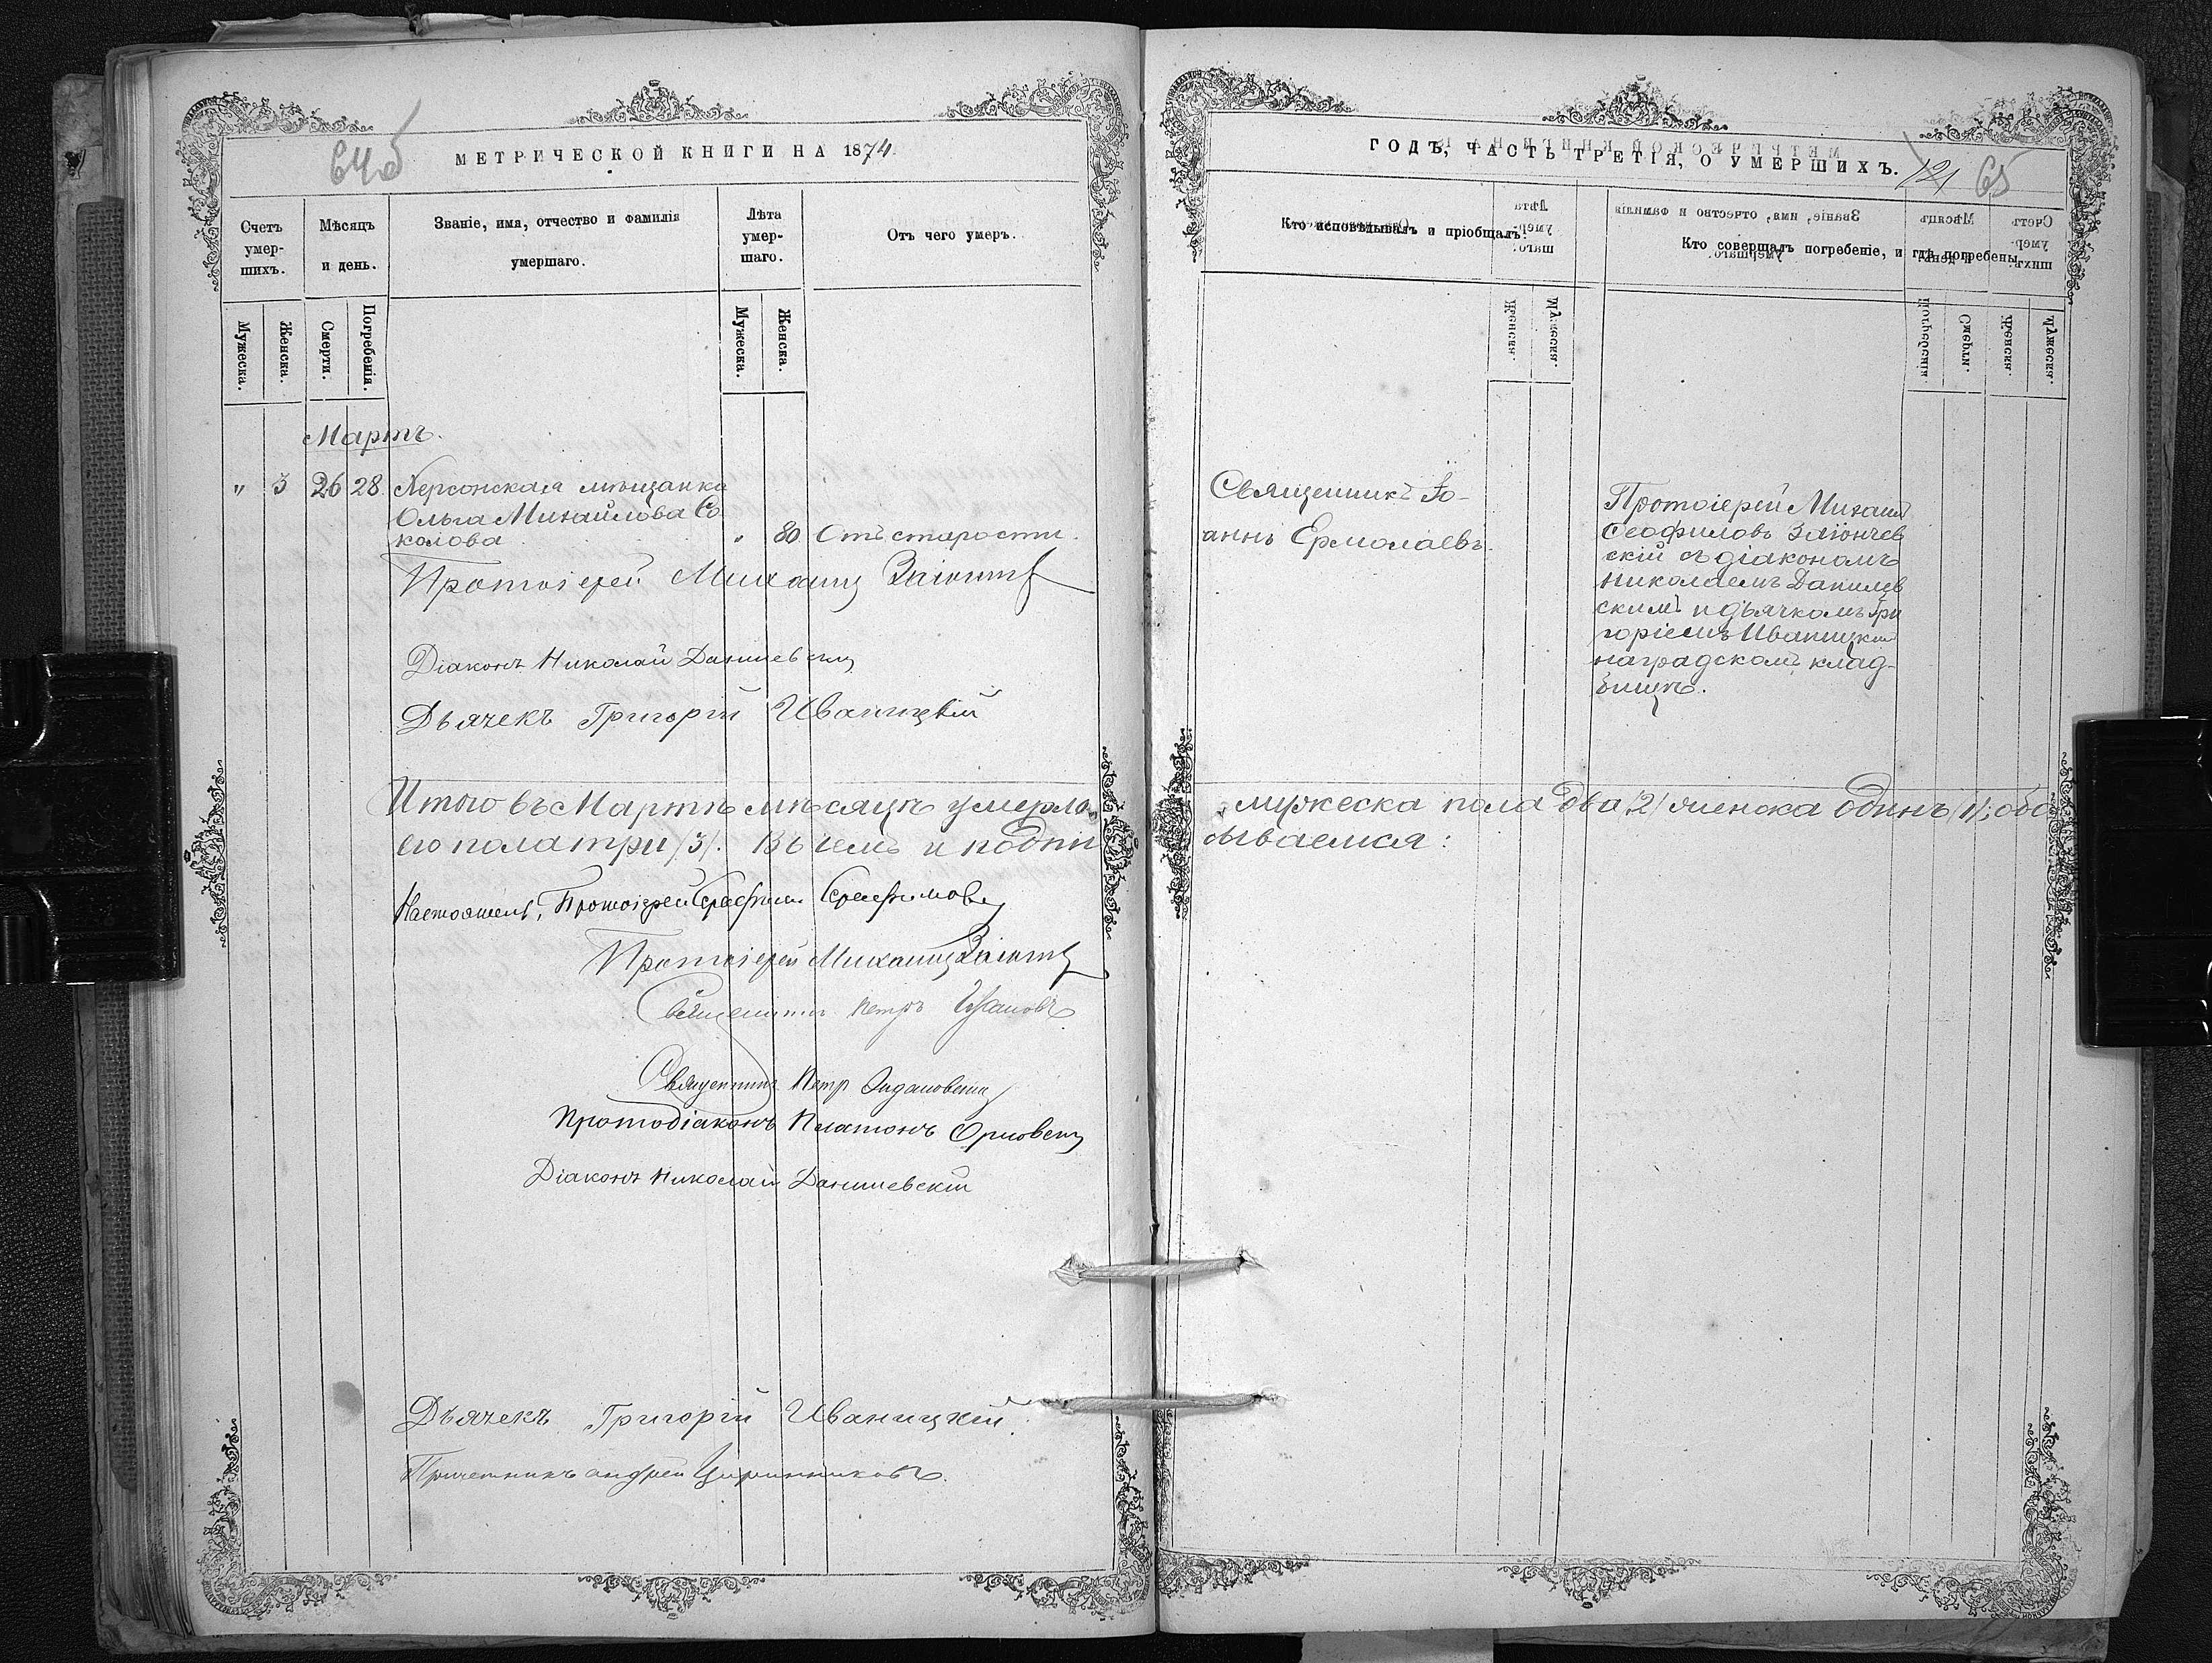 64об
МЕТРИЧЕСКОЙ КНИГИ НА 1874
Счетъ умер-шихъ.
Мѣсяцъ и день.
Званіе, имя, отчество и фамилія умершаго.
Лѣта умер-шаго.
Отъ чего умеръ.
Мужеска.
Женска.
Смерти.
Погребенія.
Мужеска.
Женска.
Мартъ.
" 3 26 28 Херсонская мѣщанка
Ольга Михайлова Со
колова. " 80 Отъ старости.
Протоіерей Михаилъ
Діаконъ Николай Данилевскій
Дьячекъ Григорій Иваницкій
Итого въ Мартѣ мѣсяцѣ умерло
его пола три /3/. Въ чемъ и подпи
Настоятель, Протоіерей Серафимъ Серафимовъ
Протоіерей Михаилъ
Священникъ Петръ
Священникъ Петр
Протодіаконъ Платонъ Орловскій
Діаконъ Николай Данилевскій
Дьячекъ Григорій Иваницкій.
Причетникъ Андрей
ГОДЪ, ЧАСТЬ ТРЕТІЯ, О УМЕРШИХЪ.
121 65
Кто исповѣдывалъ и пріобщалъ.
Кто совершалъ погребеніе, и гдѣ погребены.
Священникъ Іо-
аннъ Ермолаевъ.
Протоіерей Михаилъ
Ѳеофиловъ Заіончев
скій съ діакономъ
Николаемъ Данилев
скимъ и дьячкомъ Гри
горіемъ Иваницким
на градском клад-
бищѣ.
мужеска пола два /2/ женска одинъ /1/; обо
сываемся: